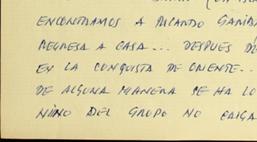 ENCONTRAMOS A RICARDO GARIBA
REGRESA A CASA... DESPUÉS D
EN LA CONQUISTA DE ORIENTE..
DE ALGUNA MANERA SE HA LO
NIÑO DEL GRUPO NO CAIGA